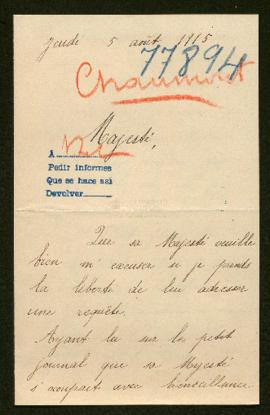 Jeudi 5 août 1915
77894
Chaumont
Majesté,
A
Pedir informes
Que se hace así
Devolver
Que sa Majesté veuille
bien m'excuser si je prends
la liberté de lui adresser
une requête.
Ayant lu sur le petit
journal que sa Majesté
s'occupait avec bienveillance